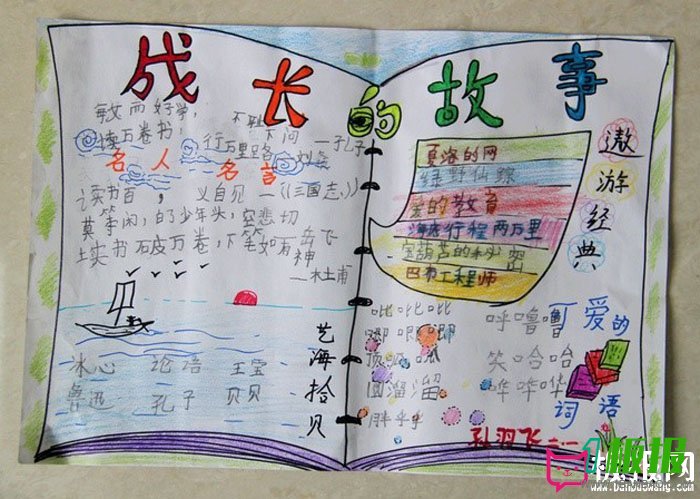 成长的故事
敏而好学，不耻下问
——孔子
读万卷书，行万里路 刘彝
名人名言
读书百 ，义自见 —《三国志》
莫等闲，白了少年头，空悲切
——岳飞
读书破万卷，下笔如有神
——杜甫
艺海拾贝
冰心 论语 王宝
鲁迅 孔子 贝贝
遨游经典
夏洛的网
绿野仙踪
爱的教育
海底行程两万里
宝葫芦的秘密
巴布工程师
可爱的词语
叽叽叽 呼噜噜
唧唧唧
顶呱呱 笑哈哈
圆溜溜 哗哗哗
胖乎乎
孔羽飞 二一
板报网
www.banbaowang.com